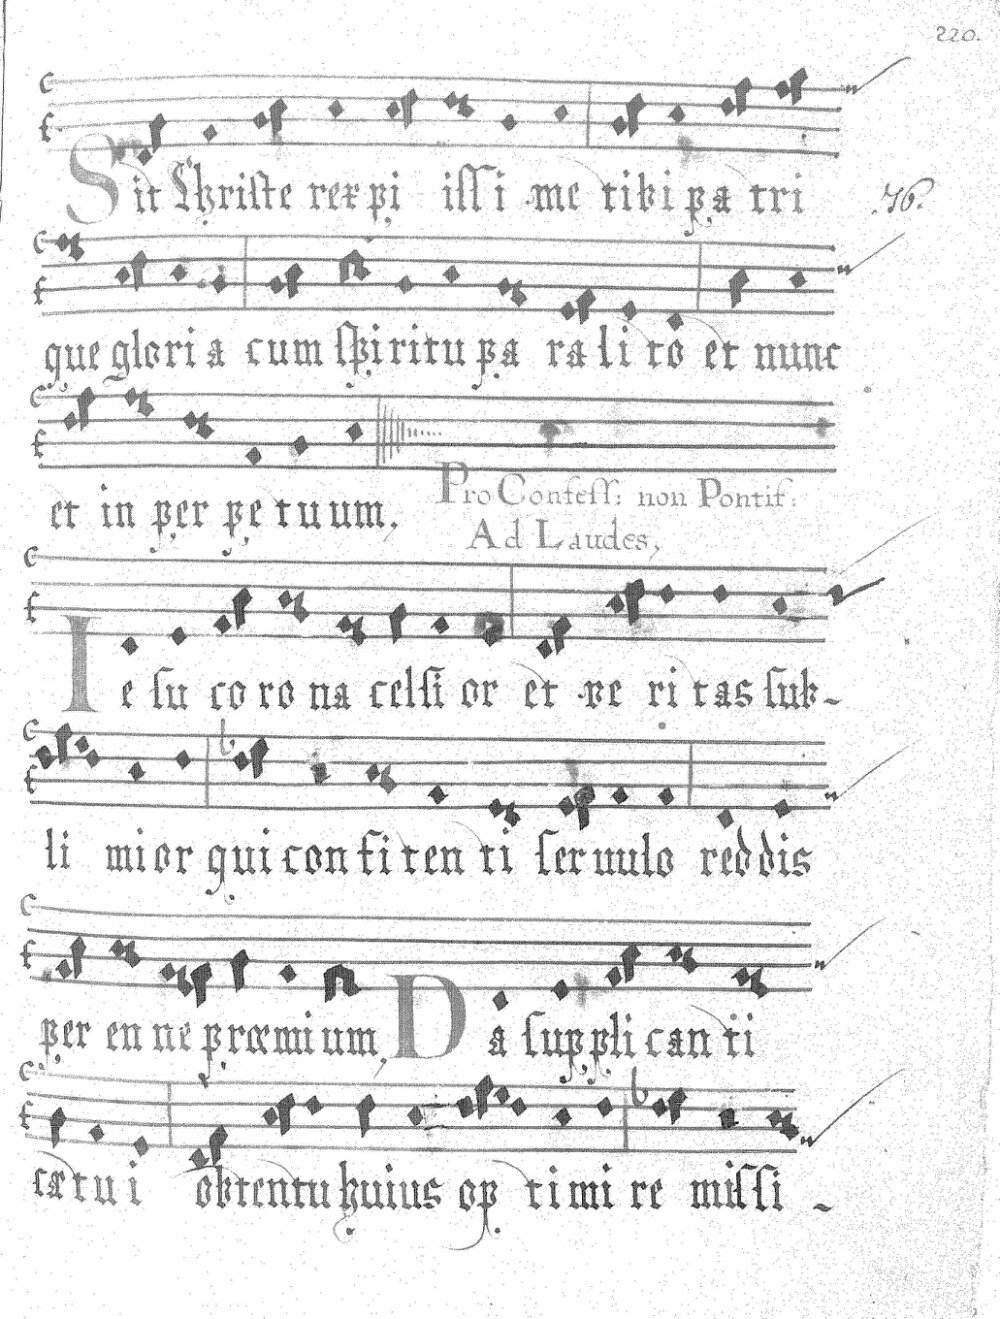 220.
Sit Christe rex pi iſſi me tibi pa tri
46.
que glori a cum ſpiritu pa ra li to et nunc
et in per pe tu um.
Pro Confeſſ: non Pontif:
Ad Laudes,
Ie ſu co ro na celſi or et ve ri tas ſub-
li mior qui con fi ten ti ſer uulo reddis
per en ne præmi um, Da suppli can ti
cæ tu i obtentu huius op ti mi re miſſi -